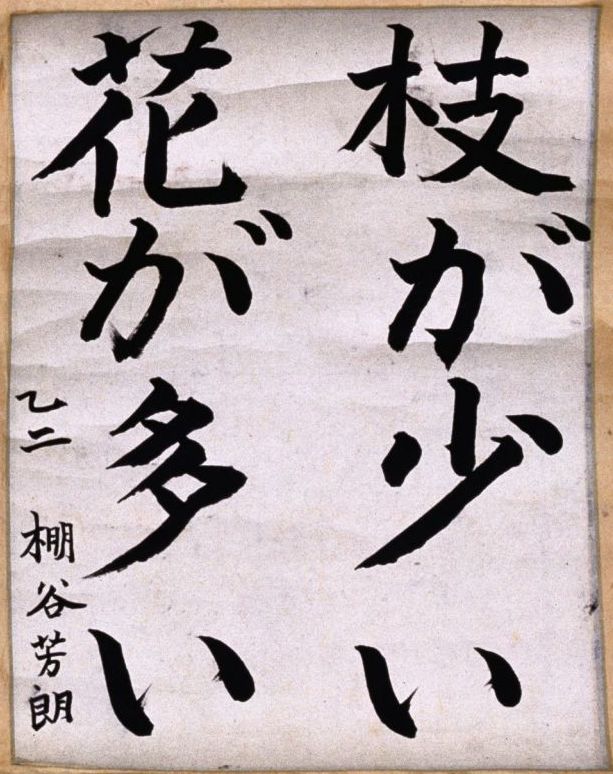 枝が少い
花が多い
乙二 棚谷芳朗